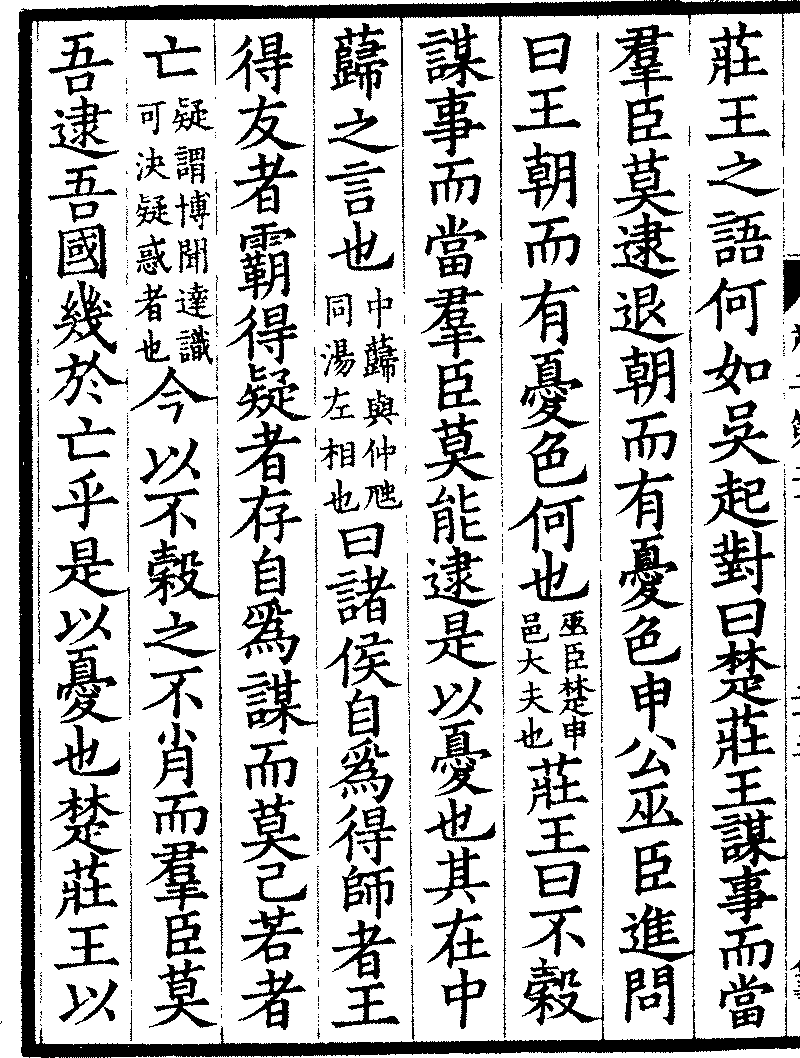 莊王之語何如吳起對曰楚莊王謀事而當
羣臣莫逮退朝而有憂色申公巫臣進問
曰王朝而有憂色何也巫臣楚申邑大夫也莊王曰不穀
謀事而當羣臣莫能逮是以憂也其在中
蘬之言也中蘬與仲虺同湯左相也曰諸侯自爲得師者王
得友者霸得疑者存自爲謀而莫己若者
亡疑謂博聞達識可決疑惑者也今以不穀之不肖而羣臣莫
吾逮吾國幾於亡乎是以憂也楚莊王以